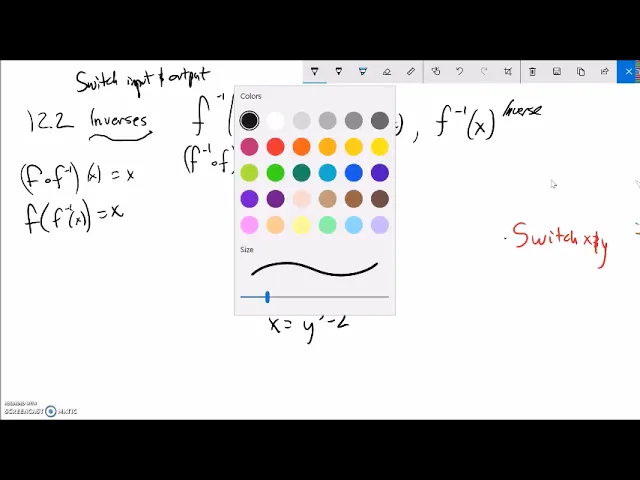 Switch input & output
12.2 Inverses f⁻¹( ), f⁻¹(x) Inverse
(f∘f⁻¹)(x) = x (f⁻¹∘f)
f(f⁻¹(x)) = x
Switch x & y
Colors
Size
RECORDED WITH
SCREENCAST MATIC